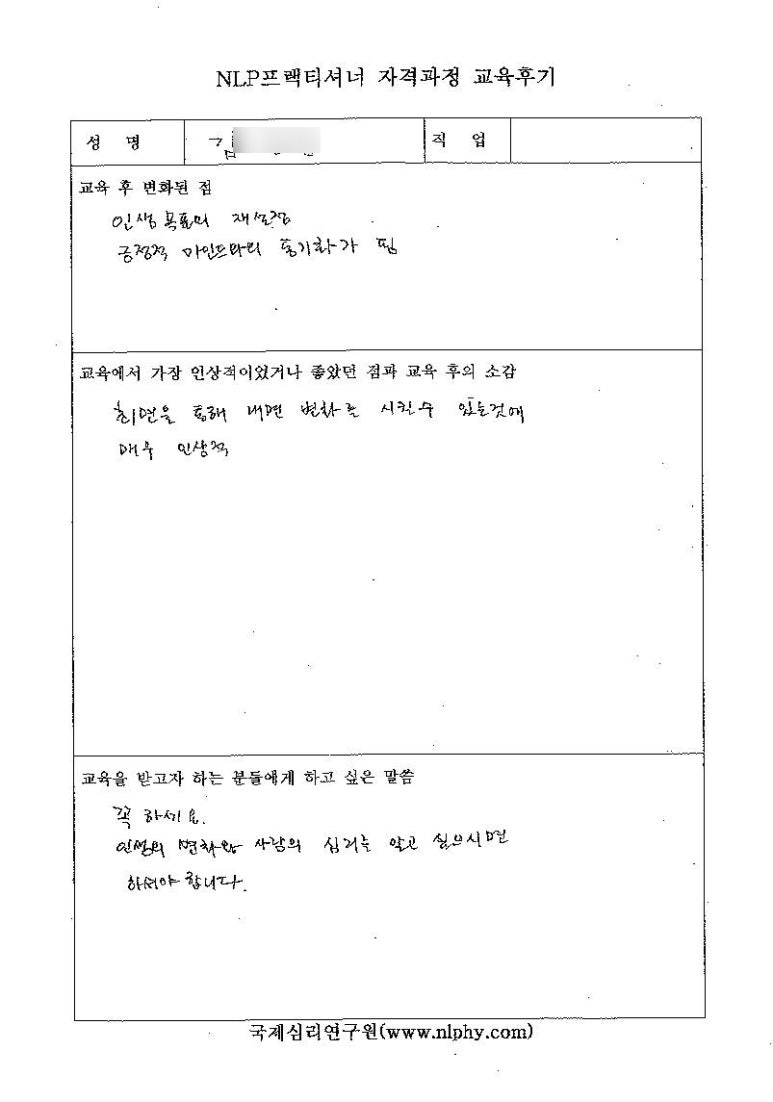 NLP프랙티셔너 자격과정 교육후기
성 명 직 업
교육 후 변화된 점
인생 목표의 재설정
긍정적 마인드와의 동기화가 됨
교육에서 가장 인상적이었거나 좋았던 점과 교육 후의 소감
최면을 통해 내면 변화를 시킬수 있는것에
매우 인상적
교육을 받고자 하는 분들에게 하고 싶은 말씀
꼭 하세요.
인생의 변화와 사람의 심리를 알고 싶으시면
하셔야 합니다.
국제심리연구원(www.nlphy.com)